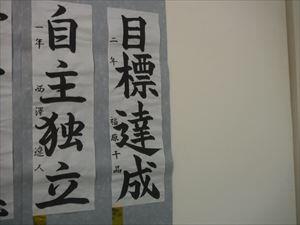 目標達成
二年 福原千晶
自主独立
一年 西澤逸人